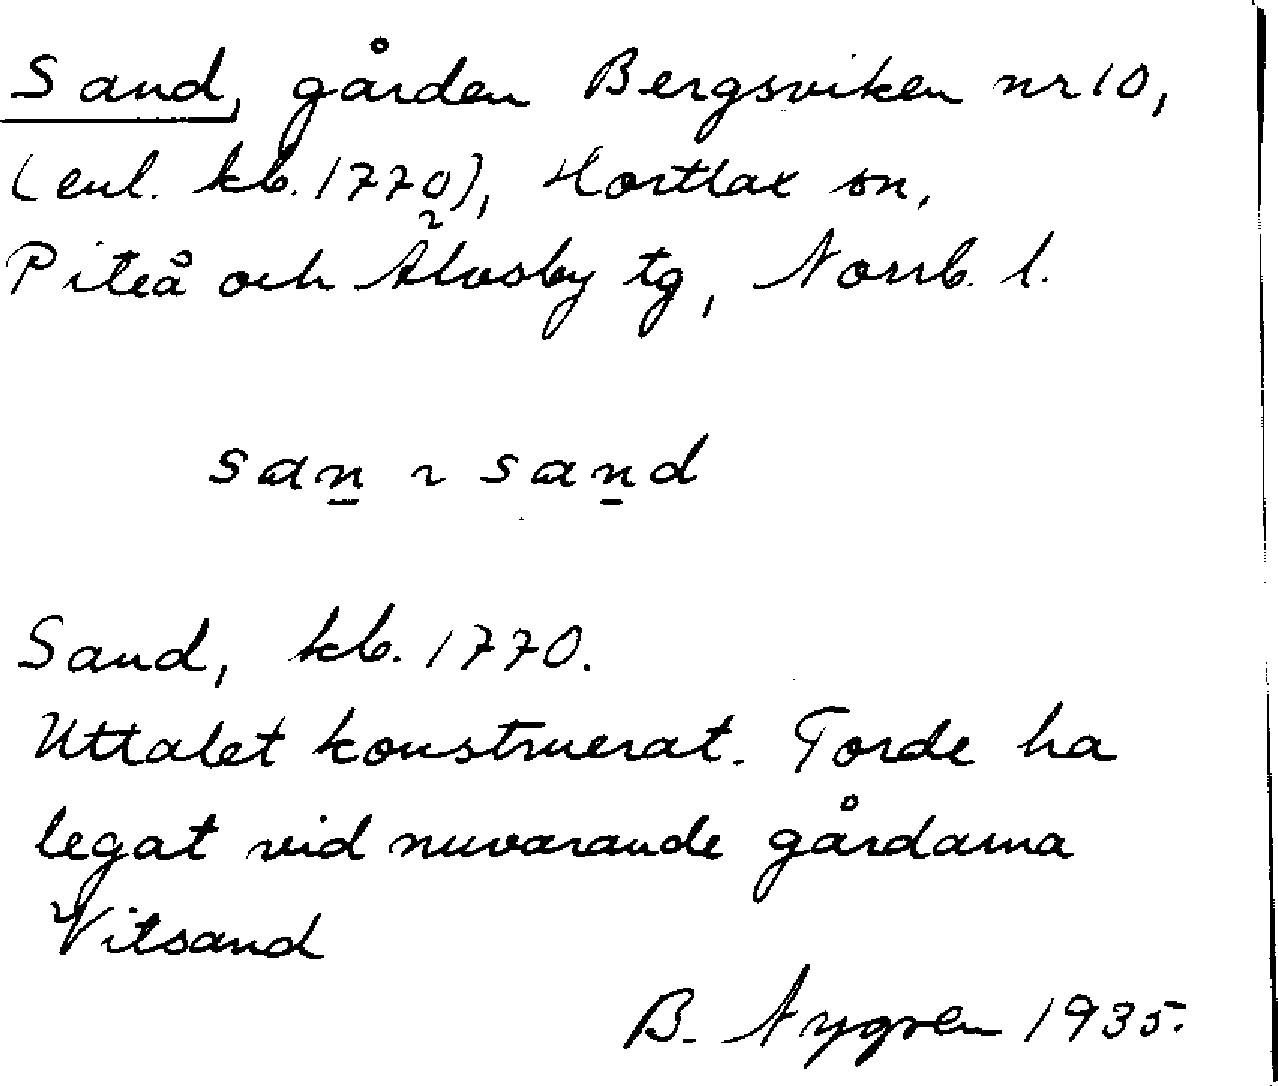 Sand, gården Bergsviken nr 10,
(enl. kb. 1770), Hortlax sn,
Piteå och Älvsby tg, Norrb. l.
san ~ sand
Sand, kb. 1770.
Uttalet konstruerat. Torde ha
legat vid nuvarande gårdarna
Vitsand
B. Nygren 1935.